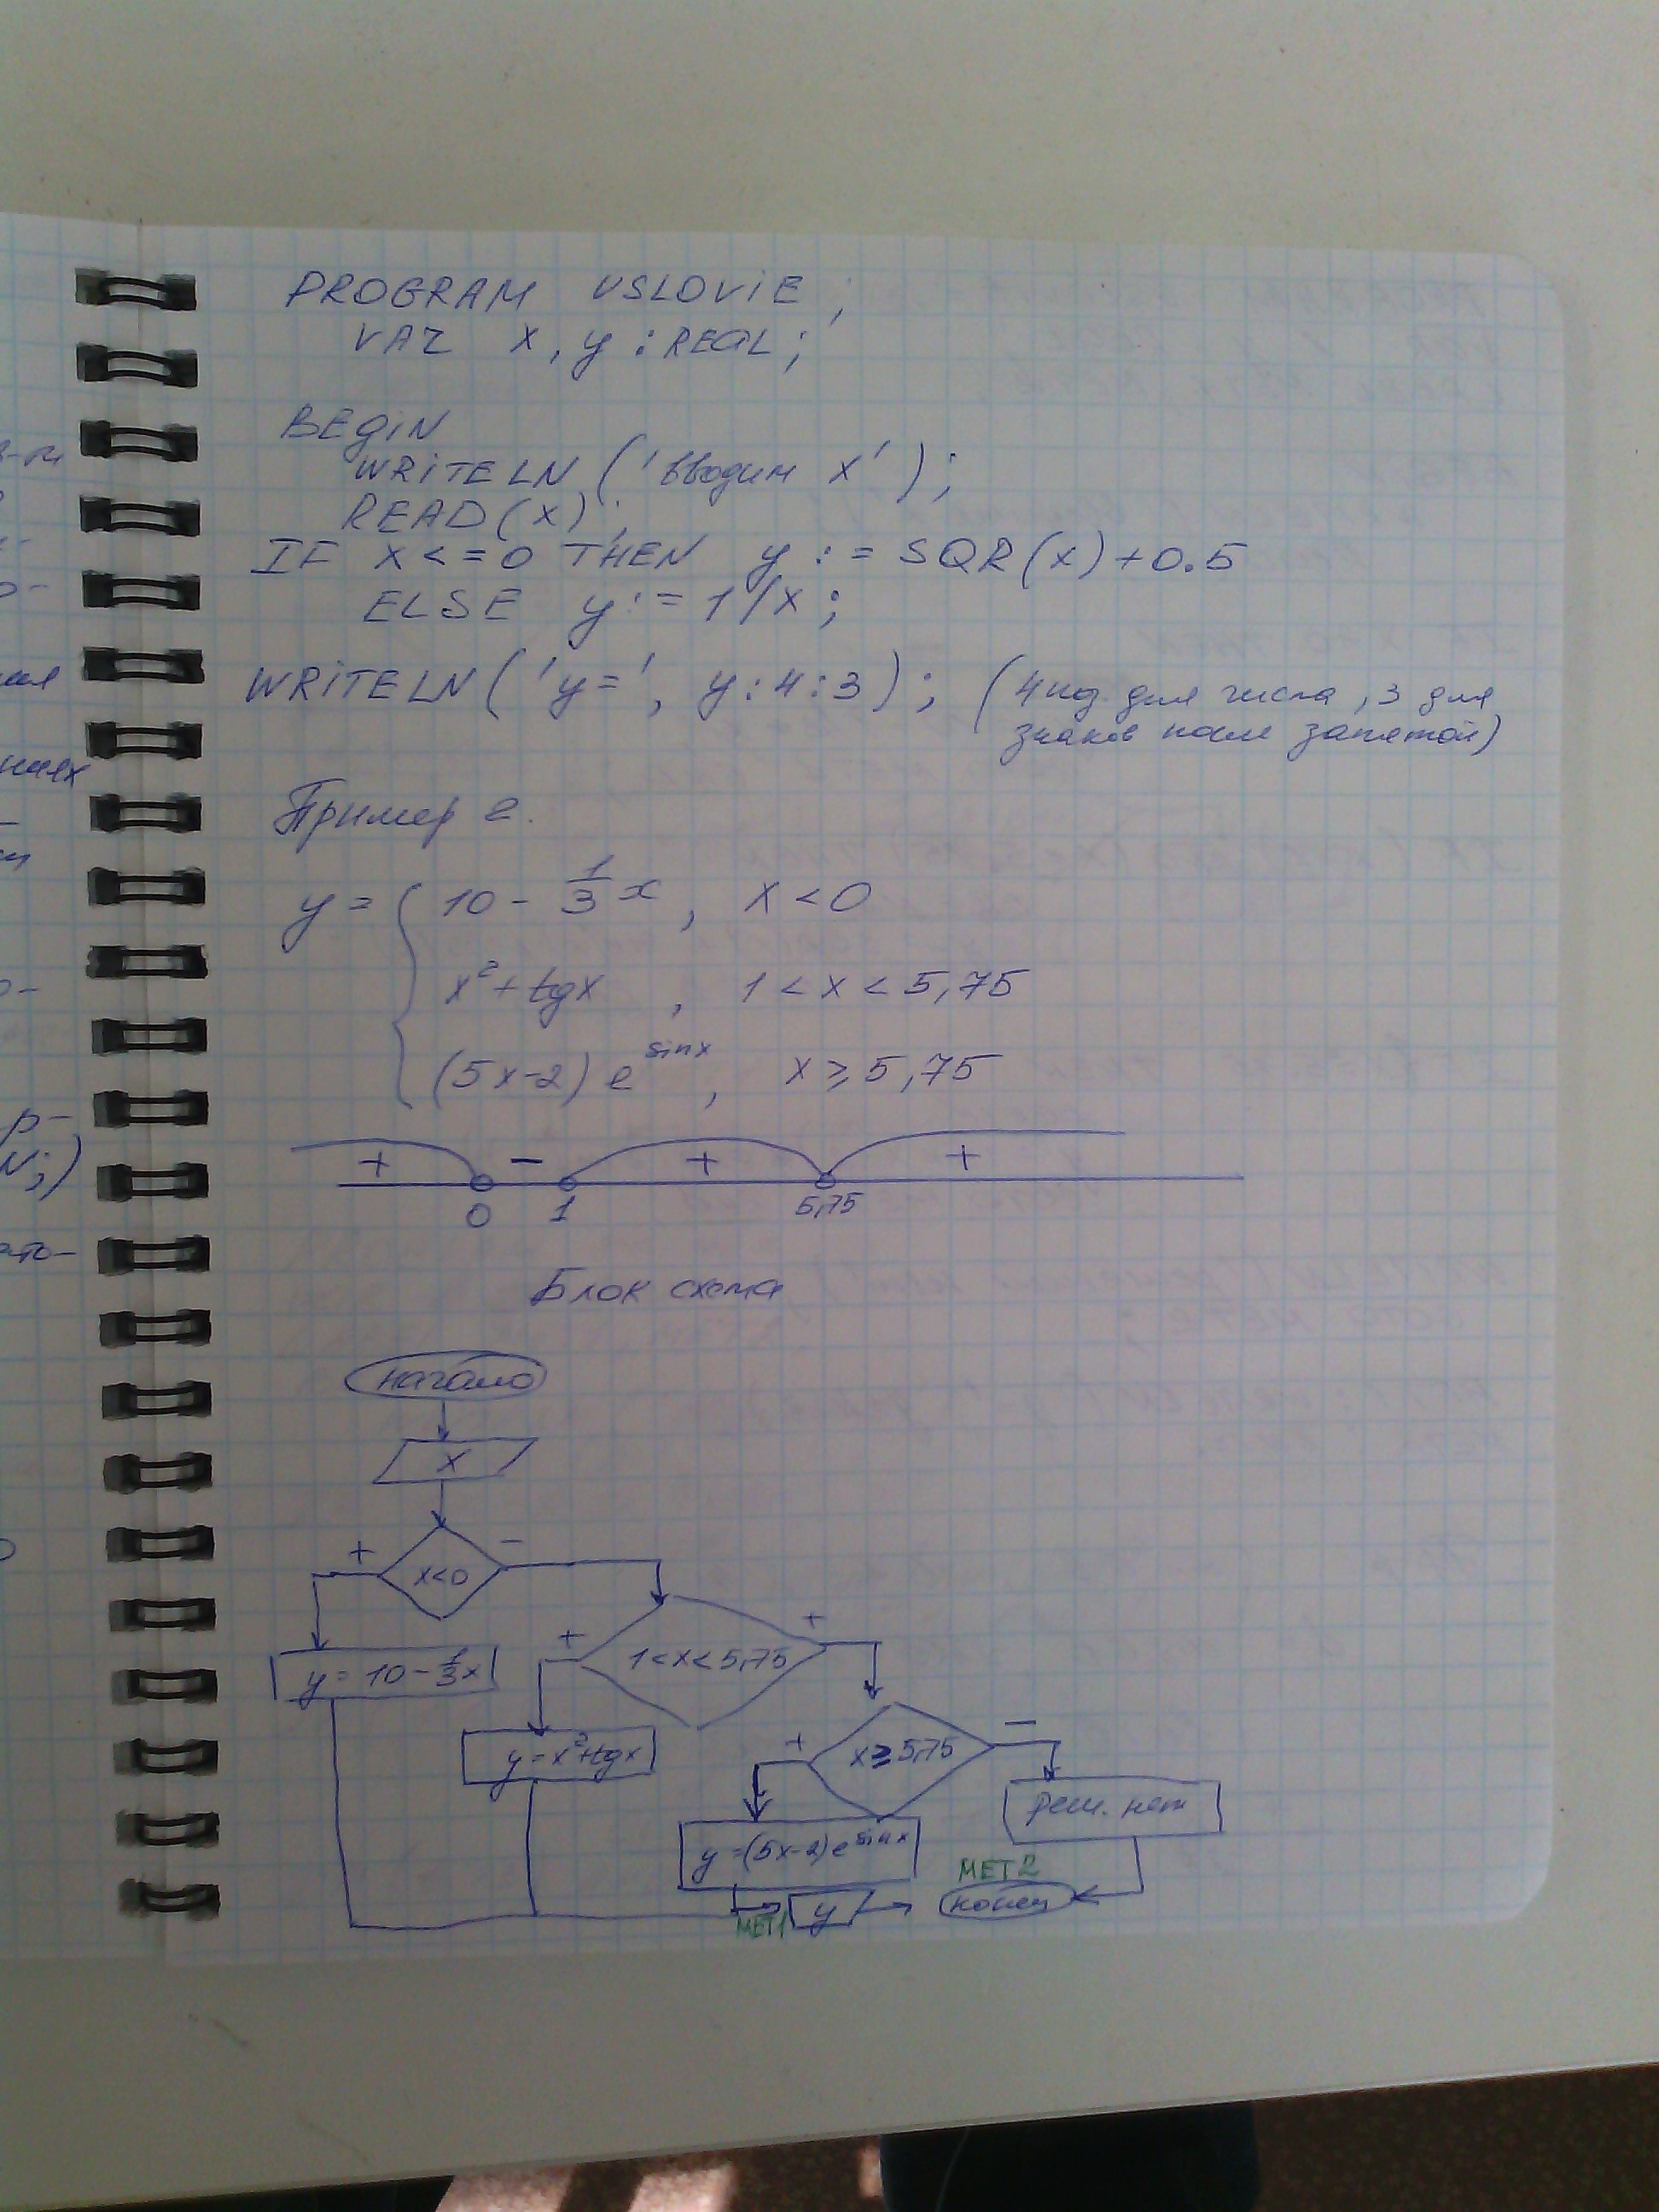 PROGRAM USLOVIE;
VAR x, y : REAL;
BEGIN
WRITELN ('вводим x');
READ(x);
IF x <= 0 THEN y := SQR(x)+0.5
ELSE y := 1/x;
WRITELN('y=', y:4:3); (4 поз. для числа, 3 для
знаков после запятой)
Пример 2.
y = { 10 - 1/3 x, x < 0
x² + tgx, 1 < x < 5,75
(5x-2) e^sinx, x ≥ 5,75
+ - + +
0 1 5,75
Блок схема
начало
x
+ x<0 -
+ 1<x<5,75 +
y = 10 - 1/3 x
+ x ≥ 5,75 -
y = x² + tgx
реш. нет
y = (5x-2) e^sinx
МЕТ2
МЕТ1 y конец